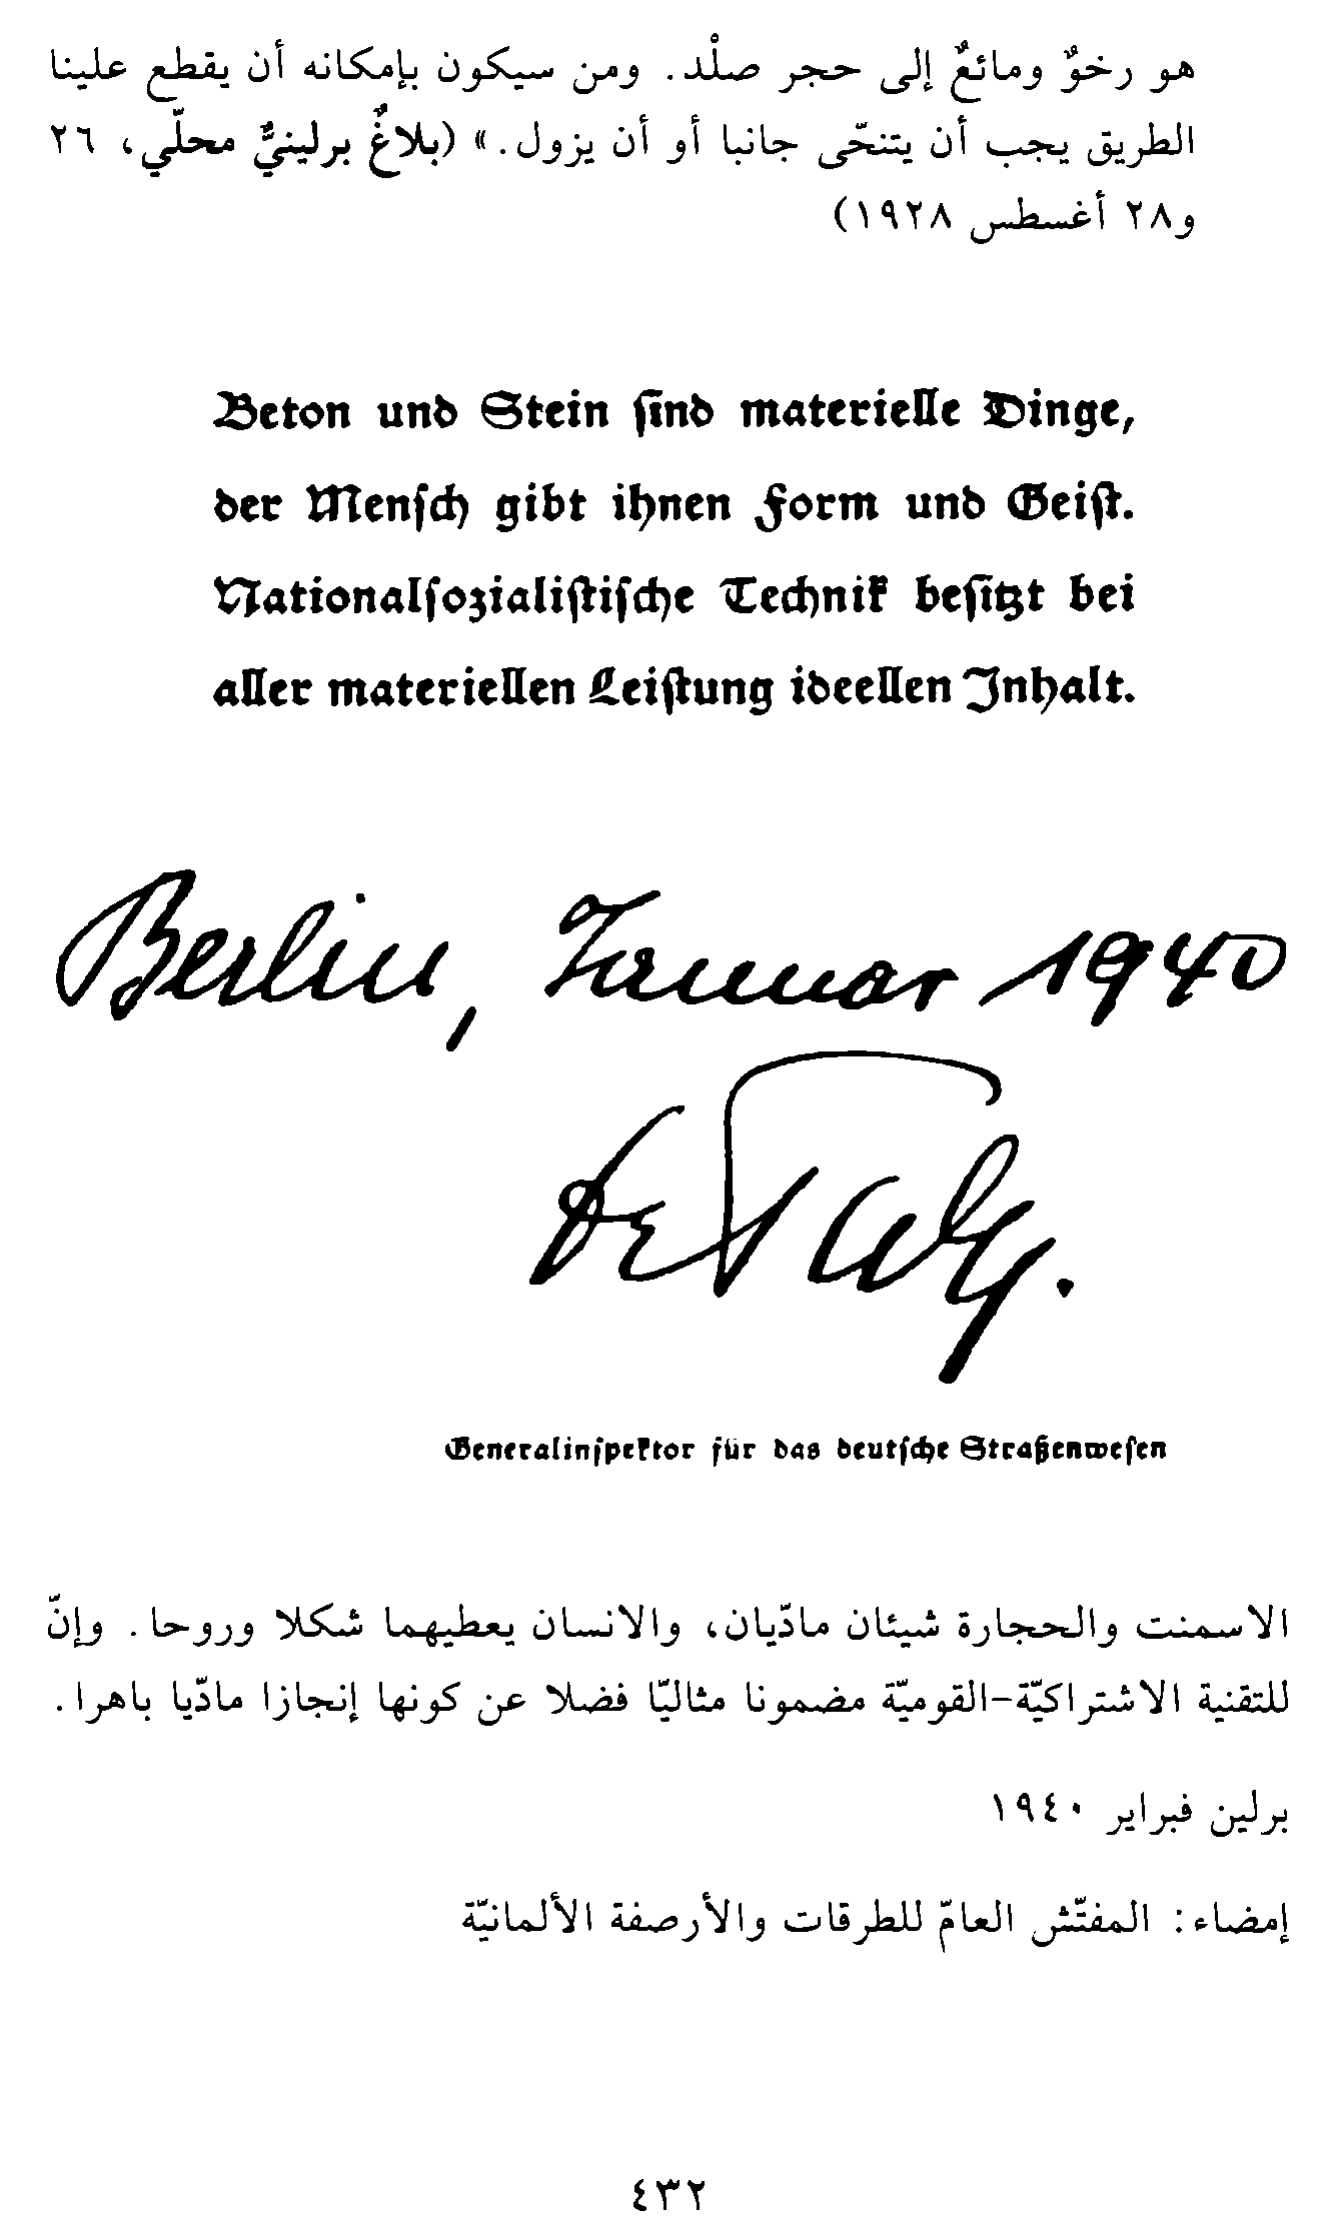 هو رخوٌ ومائعٌ إلى حجر صلْد. ومن سيكون بإمكانه أن يقطع علينا
الطريق يجب أن يتنحّى جانبا أو أن يزول.» (بلاغٌ برلينيٌّ محلّي، ٢٦
و٢٨ أغسطس ١٩٢٨)
Beton und Stein sind materielle Dinge,
der Mensch gibt ihnen Form und Geist.
Nationalsozialistische Technik besitzt bei
aller materiellen Leistung ideellen Inhalt.
Berlin, Januar 1940
Generalinspektor für das deutsche Straßenwesen
الاسمنت والحجارة شيئان مادّيان، والانسان يعطيهما شكلا وروحا. وإنّ
للتقنية الاشتراكيّة-القوميّة مضمونا مثاليّا فضلا عن كونها إنجازا مادّيا باهرا.
برلين فبراير ١٩٤٠
إمضاء: المفتّش العامّ للطرقات والأرصفة الألمانيّة
٤٣٢